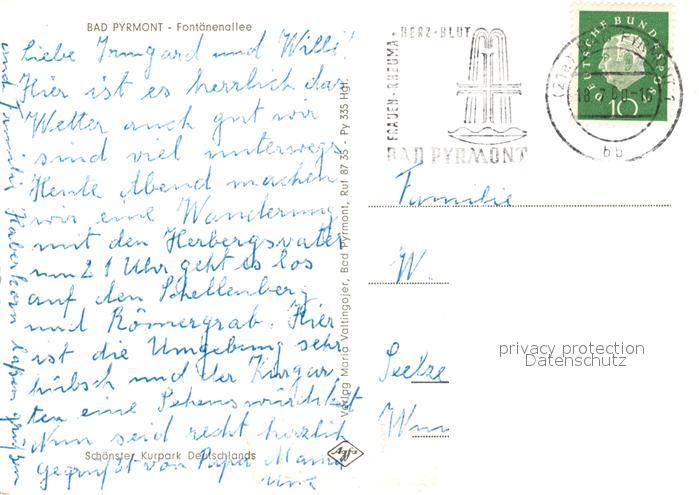 BAD PYRMONT - Fontänenallee
Liebe Irmgard und Willi!
Hier ist es herrlich das
Wetter auch gut wir
sind viel unterwegs
Heute Abend machen
wir eine Wanderung
mit den Herbergsvater
um 21 Uhr geht es los
auf den Schellenberg
und Römergrab. Hier
ist die Umgebung sehr
hübsch und der Kurgar
ten eine Sehenswürdikeit
Nun seid recht herzlich
gegrüßt von Papa Mama
und Familie Haberkorn laßen grüßen
Schönster Kurpark Deutschlands
Verlag Maria Valtingojer, Bad Pyrmont, Ruf 87 35 - Py 335 Hgt.
Agfa
FRAUEN-RHEUMA-HERZ-BLUT
BAD PYRMONT
18.7.60-16
bb
DEUTSCHE BUNDESPOST
10
Familie
W.
Seelze
Wun
privacy protection
Datenschutz